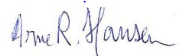 Arne R. Hansen